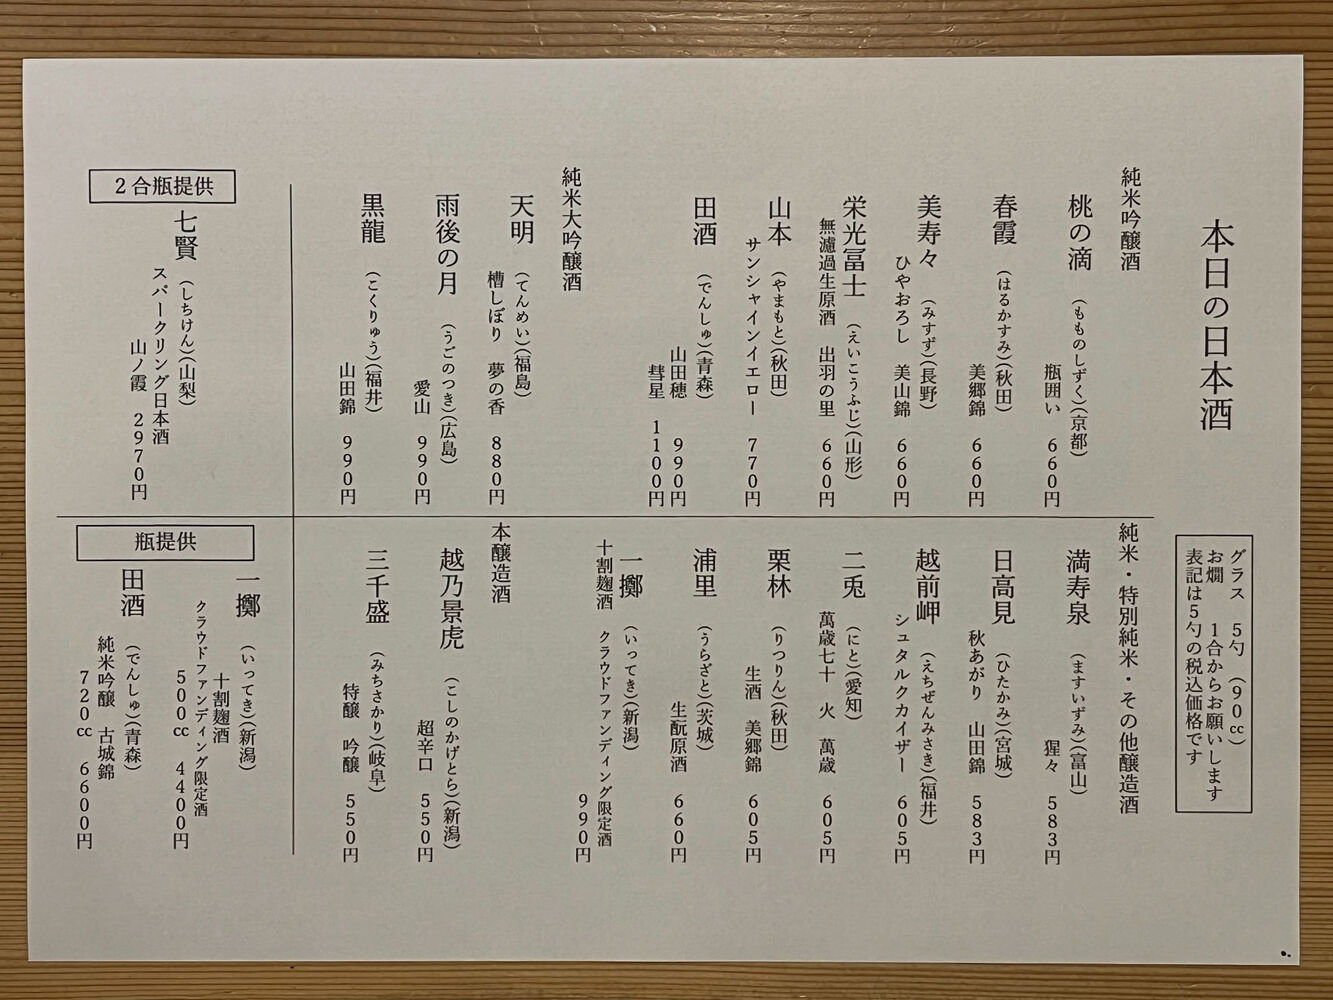 本日の日本酒
グラス　5勺　（90cc）
お燗　1合からお願いします
表記は5勺の税込価格です
純米吟醸酒
桃の滴　（もものしずく）（京都）
瓶囲い　660円
春霞　（はるかすみ）（秋田）
美郷錦　660円
美寿々　（みすず）（長野）
ひやおろし　美山錦　660円
栄光冨士　（えいこうふじ）（山形）
無濾過生原酒　出羽の里　660円
山本　（やまもと）（秋田）
サンシャインイエロー　770円
田酒　（でんしゅ）（青森）
山田穂　990円
彗星　1100円
純米大吟醸酒
天明　（てんめい）（福島）
槽しぼり　夢の香　880円
雨後の月　（うごのつき）（広島）
愛山　990円
黒龍　（こくりゅう）（福井）
山田錦　990円
純米・特別純米・その他醸造酒
満寿泉　（ますいずみ）（富山）
猩々　583円
日高見　（ひたかみ）（宮城）
秋あがり　山田錦　583円
越前岬　（えちぜんみさき）（福井）
シュタルクカイザー　605円
二兎　（にと）（愛知）
萬歳七十　火　萬歳　605円
栗林　（りつりん）（秋田）
生酒　美郷錦　605円
浦里　（うらざと）（茨城）
生酛原酒　660円
一擲　（いってき）（新潟）
十割麹酒　クラウドファンディング限定酒
990円
本醸造酒
越乃景虎　（こしのかげとら）（新潟）
超辛口　550円
三千盛　（みちさかり）（岐阜）
特醸　吟醸　550円
2合瓶提供
七賢　（しちけん）（山梨）
スパークリング日本酒
山ノ霞　2970円
瓶提供
一擲　（いってき）（新潟）
十割麹酒
クラウドファンディング限定酒
500cc　4400円
田酒　（でんしゅ）（青森）
純米吟醸　古城錦
720cc　6600円